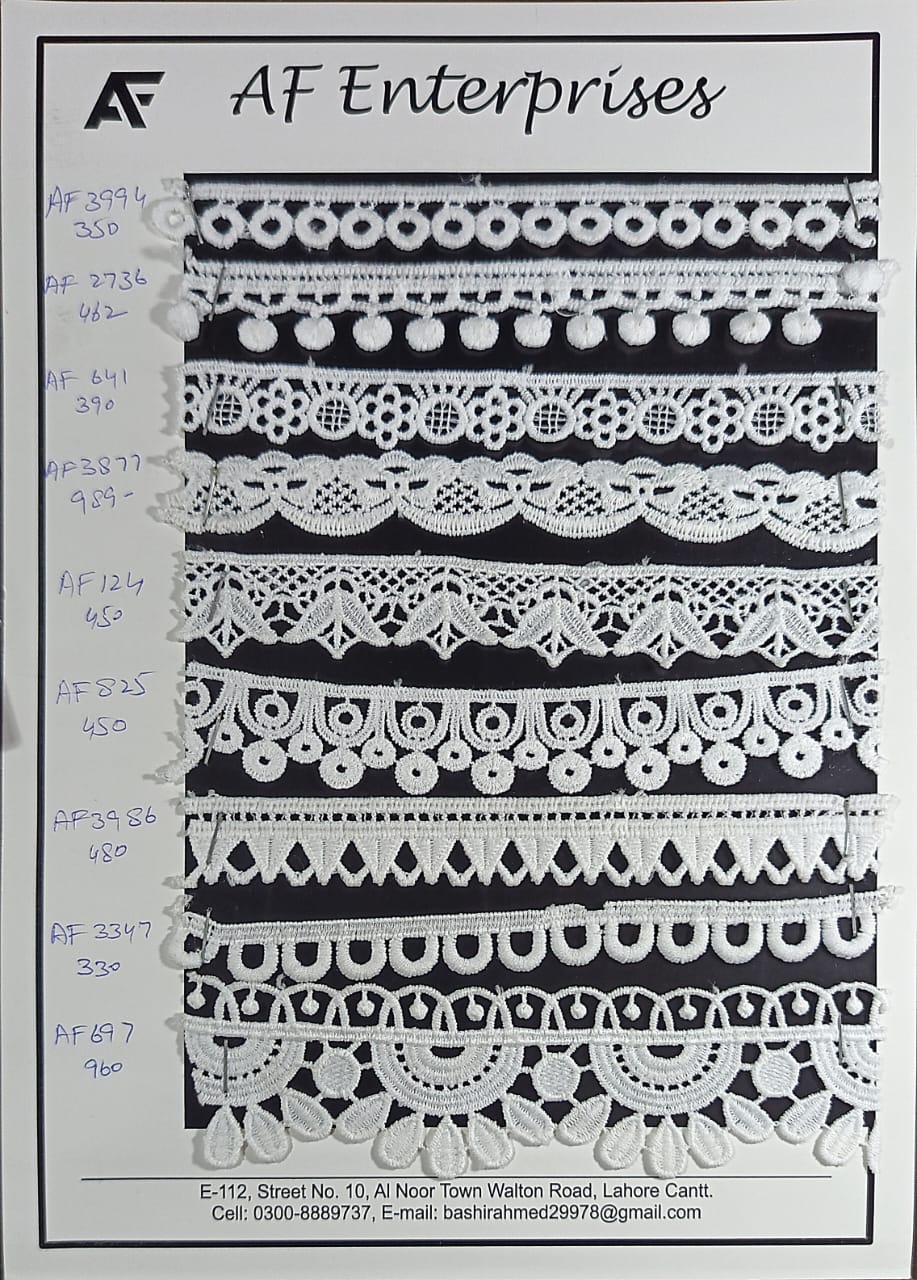 AF
AF Enterprises
AF 3994
350
AF 2736
462
AF 641
390
AF3877
989-
AF124
450
AF825
450
AF3986
480
AF 3347
330
AF697
960
E-112, Street No. 10, Al Noor Town Walton Road, Lahore Cantt.
Cell: 0300-8889737, E-mail: bashirahmed29978@gmail.com